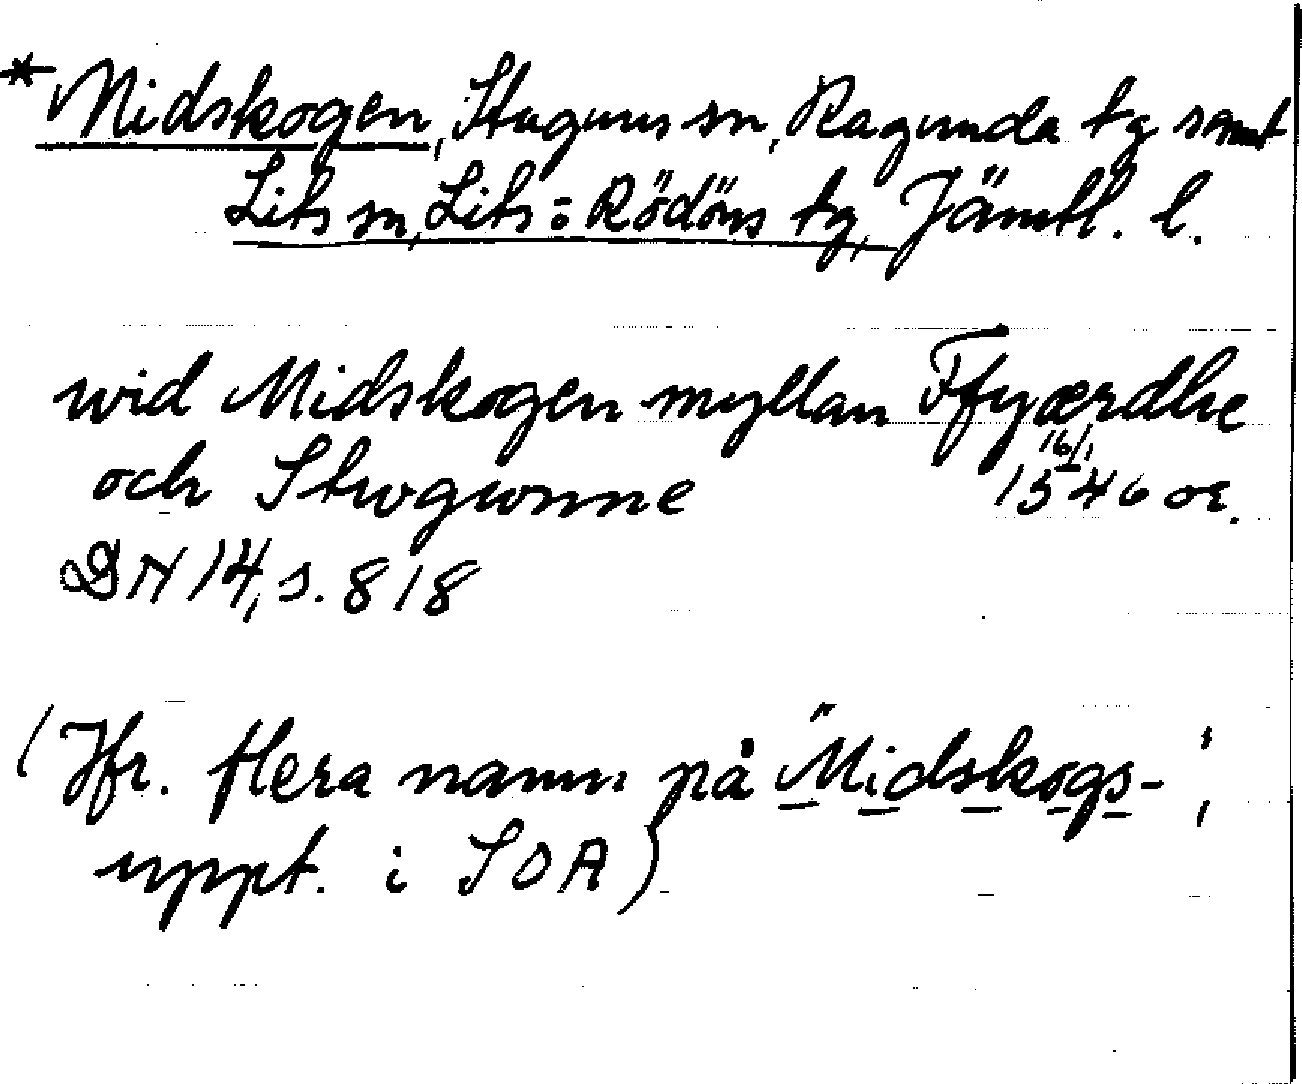 * Midskogen, Stuguns sn, Ragunda tg samt
Lits sn, Lits = Rödöns tg, Jämtl. l.
wid Midskogen myllan Ffyærdhe
och Stwgwnne 16/1 1546 or.
DN 14, s. 818
(Jfr. flera namn på "Midskogs-",
uppt. i SOA)